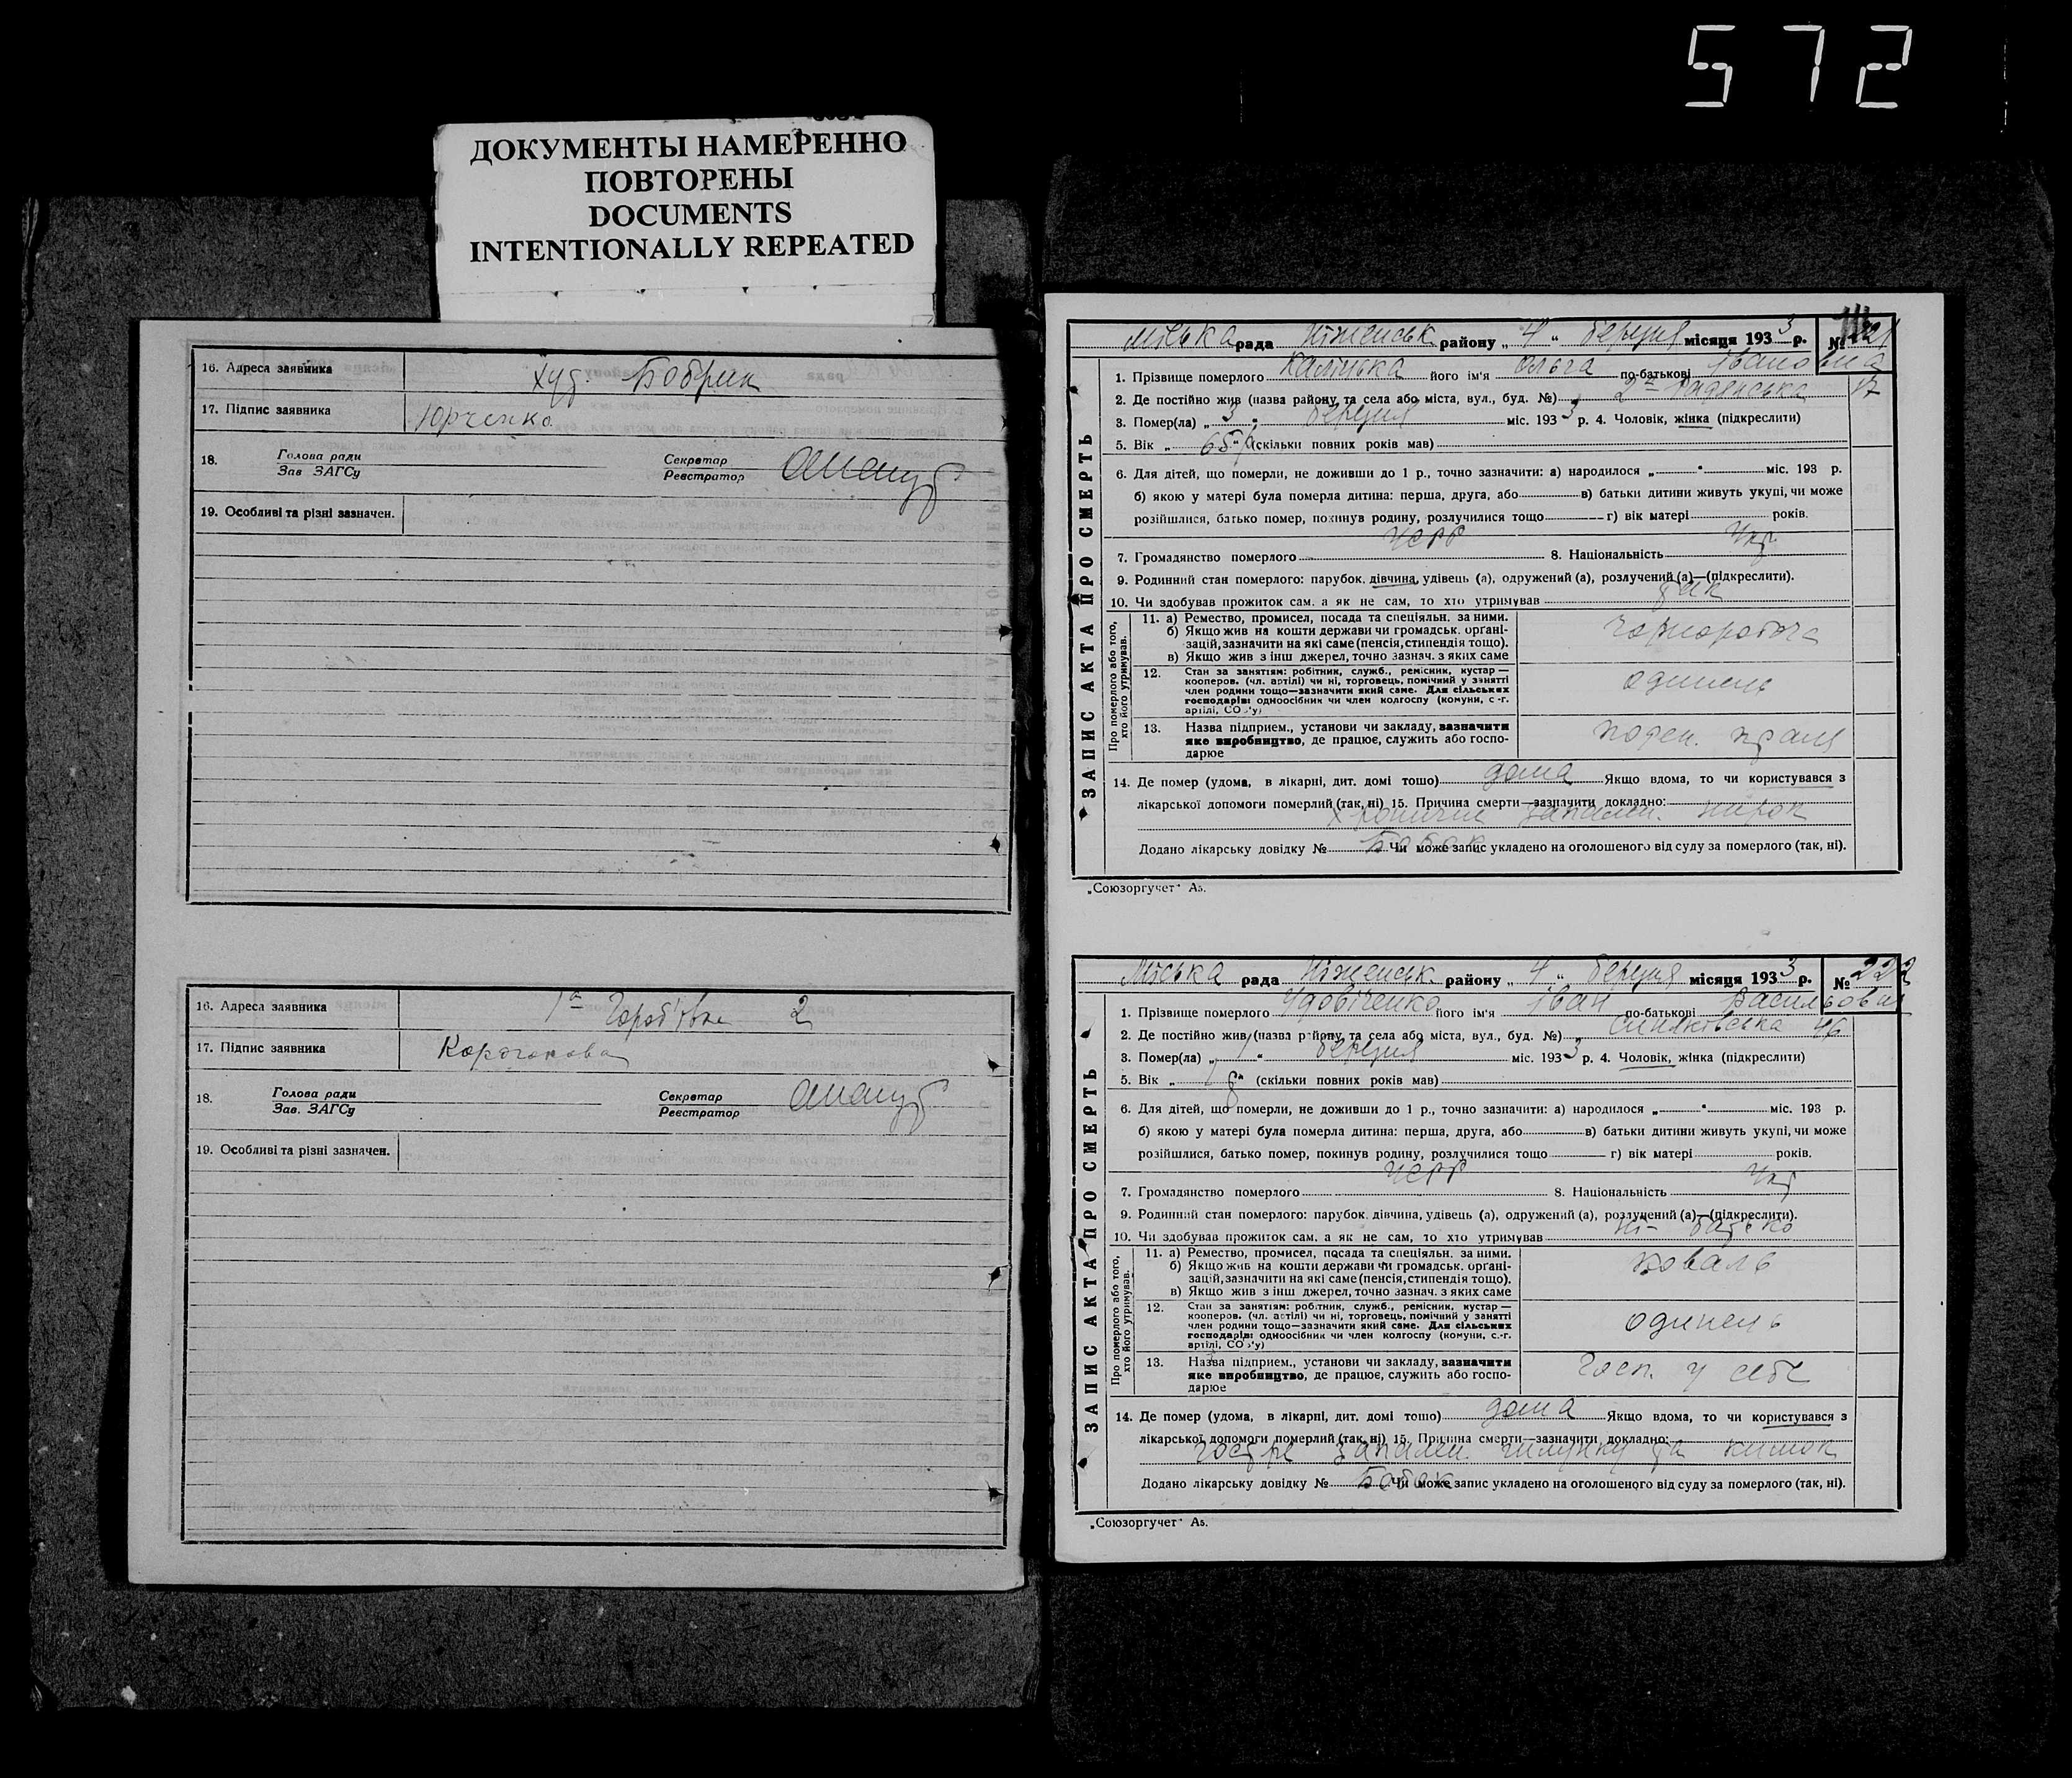 572
ДОКУМЕНТЫ НАМЕРЕННО
ПОВТОРЕНЫ
DOCUMENTS
INTENTIONALLY REPEATED
16. Адреса заявника Хут. Бобрик
17. Підпис заявника Юрченко
18. Голова ради Зав ЗАГСу Секретар Реєстратор
19. Особливі та різні зазначен.
16. Адреса заявника 1а 2
17. Підпис заявника
18. Голова ради Зав. ЗАГСу Секретар Реєстратор
19. Особливі та різні зазначен.
ЗАПИС АКТА ПРО СМЕРТЬ
Міська рада Ніженськ району „4“ березня місяця 1933 р. № 221
1. Прізвище померлого його ім'я Ольга по-батькові Івановна
2. Де постійно жив (назва району, та села або міста, вул., буд. №) 2а 17
3. Помер(ла) „3“ березня міс. 1933 р. 4. Чоловік, жінка (підкреслити)
5. Вік „65“ (скільки повних років мав)
6. Для дітей, що померли, не доживши до 1 р., точно зазначити: а) народилося „ “ міс. 193 р.
б) якою у матері була померла дитина: перша, друга, або в) батьки дитини живуть укупі, чи може
розійшлися, батько помер, покинув родину, розлучилися тощо г) вік матері років.
7. Громадянство померлого УСРР 8. Національність Укр
9. Родинний стан померлого: парубок, дівчина, удівець (а), одружений (а), розлучений (а)—(підкреслити).
10. Чи здобував прожиток сам, а як не сам, то хто утримував так
Про померлого або того, хто його утримував.
11. а) Ремество, промисел, посада та спеціяльн. за ними.
б) Якщо жив на кошти держави чи громадськ. орґані-
зацій, зазначити на які саме (пенсія, стипендія тощо).
в) Якщо жив з інш джерел, точно зазнач. з яких саме
чорноробоча
12. Стан за занятіям: робітник, служб., ремісник, кустар—
кооперов. (чл. артілі) чи ні, торговець, помічний у занятті
член родини тощо—зазначити який саме. Для сільських
господарів: одноосібник чи член колгоспу (комуни, с.-г.
артілі, СОЗ'у)
одинець
13. Назва підприєм., установи чи закладу, зазначити
яке виробництво, де працює, служить або госпо-
дарює
поден. праця
14. Де помер (удома, в лікарні, дит. домі тощо) дома Якщо вдома, то чи користувався з
лікарської допомоги померлий (так, ні) 15. Причина смерти—зазначити докладно:
Хронічне запален. нирок
Додано лікарську довідку № Бобок Чи може запис укладено на оголошеного від суду за померлого (так, ні).
„Союзоргучет“ Аs.
ЗАПИС АКТА ПРО СМЕРТЬ
Міська рада Ніженськ. району „4“ березня місяця 1933 р. № 222
1. Прізвище померлого Удовіченко його ім'я Іван по-батькові Васильович
2. Де постійно жив (назва району, та села або міста, вул., буд. №) Синяківська 46
3. Помер(ла) „1“ березня міс. 1933 р. 4. Чоловік, жінка (підкреслити)
5. Вік „ “ (скільки повних років мав)
6. Для дітей, що померли, не доживши до 1 р., точно зазначити: а) народилося „ “ міс. 193 р.
б) якою у матері була померла дитина: перша, друга, або в) батьки дитини живуть укупі, чи може
розійшлися, батько помер, покинув родину, розлучилися тощо г) вік матері років.
7. Громадянство померлого УСРР 8. Національність Укр
9. Родинний стан померлого: парубок, дівчина, удівець (а), одружений (а), розлучений (а)—(підкреслити).
10. Чи здобував прожиток сам, а як не сам, то хто утримував ні – батько
Про померлого або того, хто його утримував.
11. а) Ремество, промисел, посада та спеціяльн. за ними.
б) Якщо жив на кошти держави чи громадськ. орґані-
зацій, зазначити на які саме (пенсія, стипендія тощо).
в) Якщо жив з інш джерел, точно зазнач. з яких саме
коваль
12. Стан за занятіям: робітник, служб., ремісник, кустар—
кооперов. (чл. артілі) чи ні, торговець, помічний у занятті
член родини тощо—зазначити який саме. Для сільських
господарів: одноосібник чи член колгоспу (комуни, с.-г.
артілі, СОЗ'у)
одинець
13. Назва підприєм., установи чи закладу, зазначити
яке виробництво, де працює, служить або госпо-
дарює
Госп. у себе
14. Де помер (удома, в лікарні, дит. домі тощо) дома Якщо вдома, то чи користувався з
лікарської допомоги померлий (так, ні) 15. Причина смерти—зазначити докладно:
гостре запален. шлунку та кишок
Додано лікарську довідку № Бобок Чи може запис укладено на оголошеного від суду за померлого (так, ні).
„Союзоргучет“ Аs.